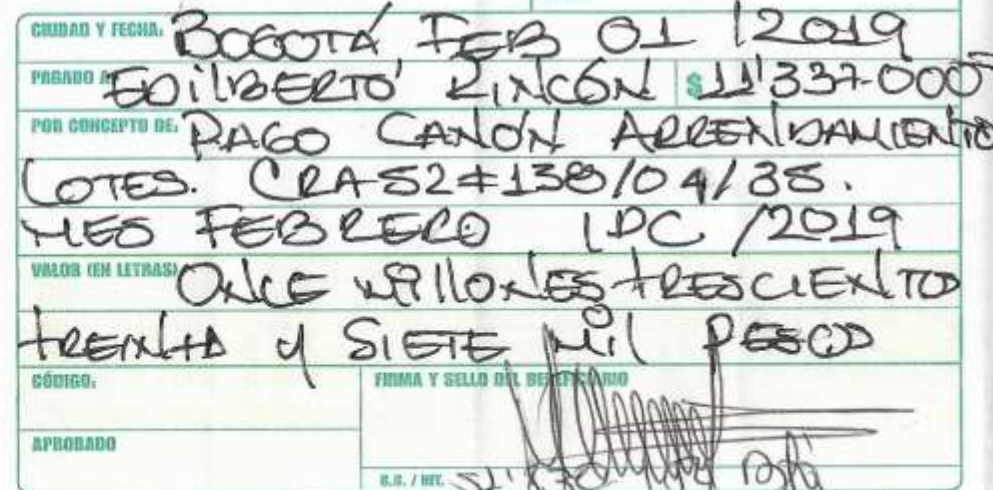 CIUDAD Y FECHA: BOGOTÁ FEB 01 / 2019
PAGADO A: EDILBERTO RINCÓN $ 11'337.000
POR CONCEPTO DE: PAGO CANON ARRENDAMIENTO
LOTES. CRA 52 # 138/04/38.
MES FEBRERO IPC /2019
VALOR (EN LETRAS) ONCE MILLONES TRESCIENTOS
TREINTA Y SIETE MIL PESOS
CÓDIGO:
FIRMA Y SELLO DEL BENEFICIARIO
APROBADO
C.C. / NIT.